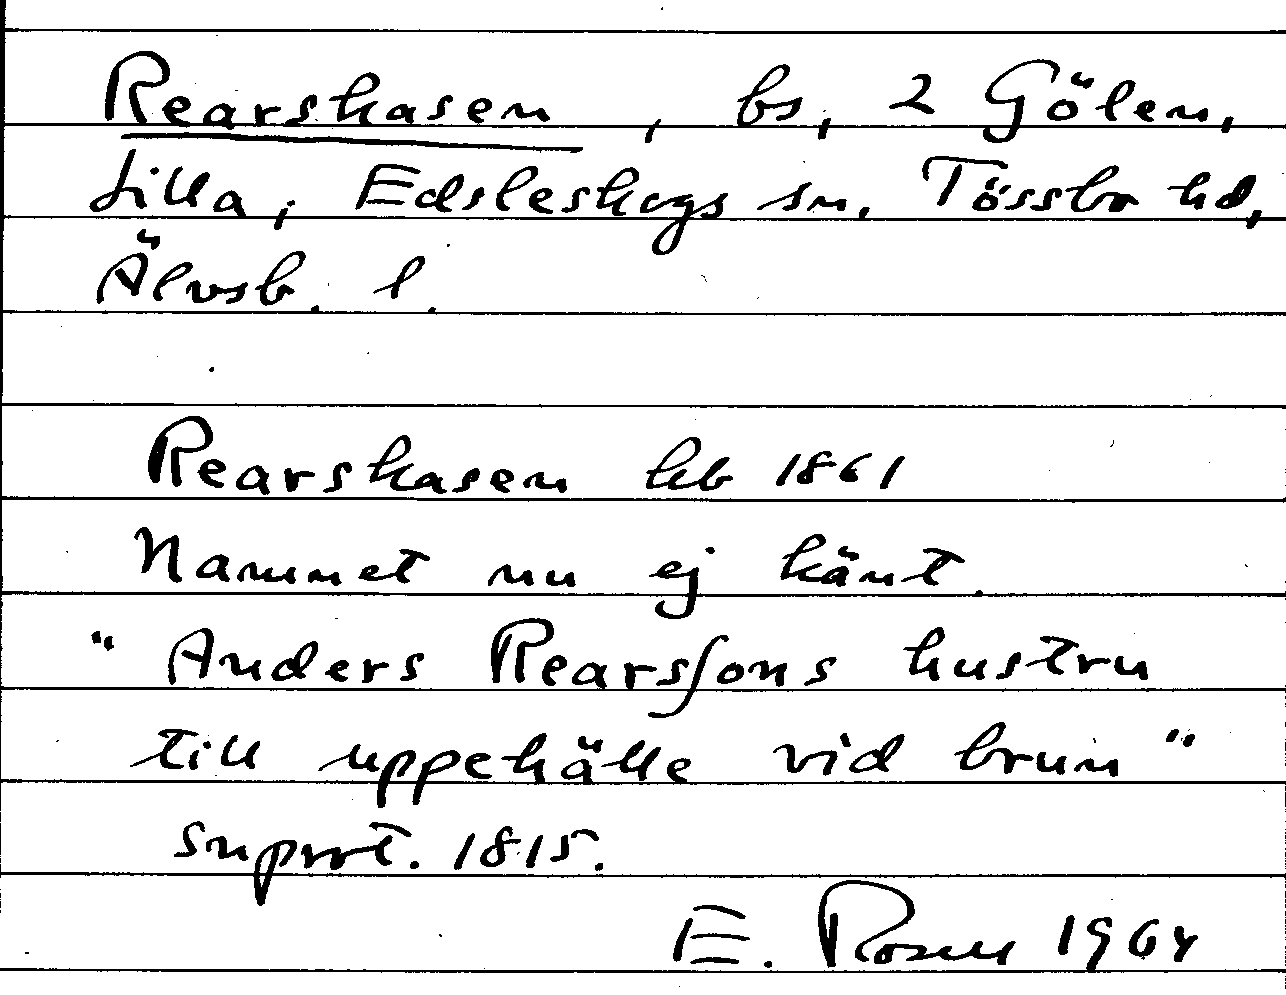 Rearskasen, bs, 2 Gölen,
Lilla, Edsleskogs sn. Tössbo hd,
Älvsb. l.
Rearskasen hb 1861
Namnet nu ej känt.
"Anders Rearssons hustru
till uppehälle vid brun"
snprot. 1815.
E. Rosen 1964